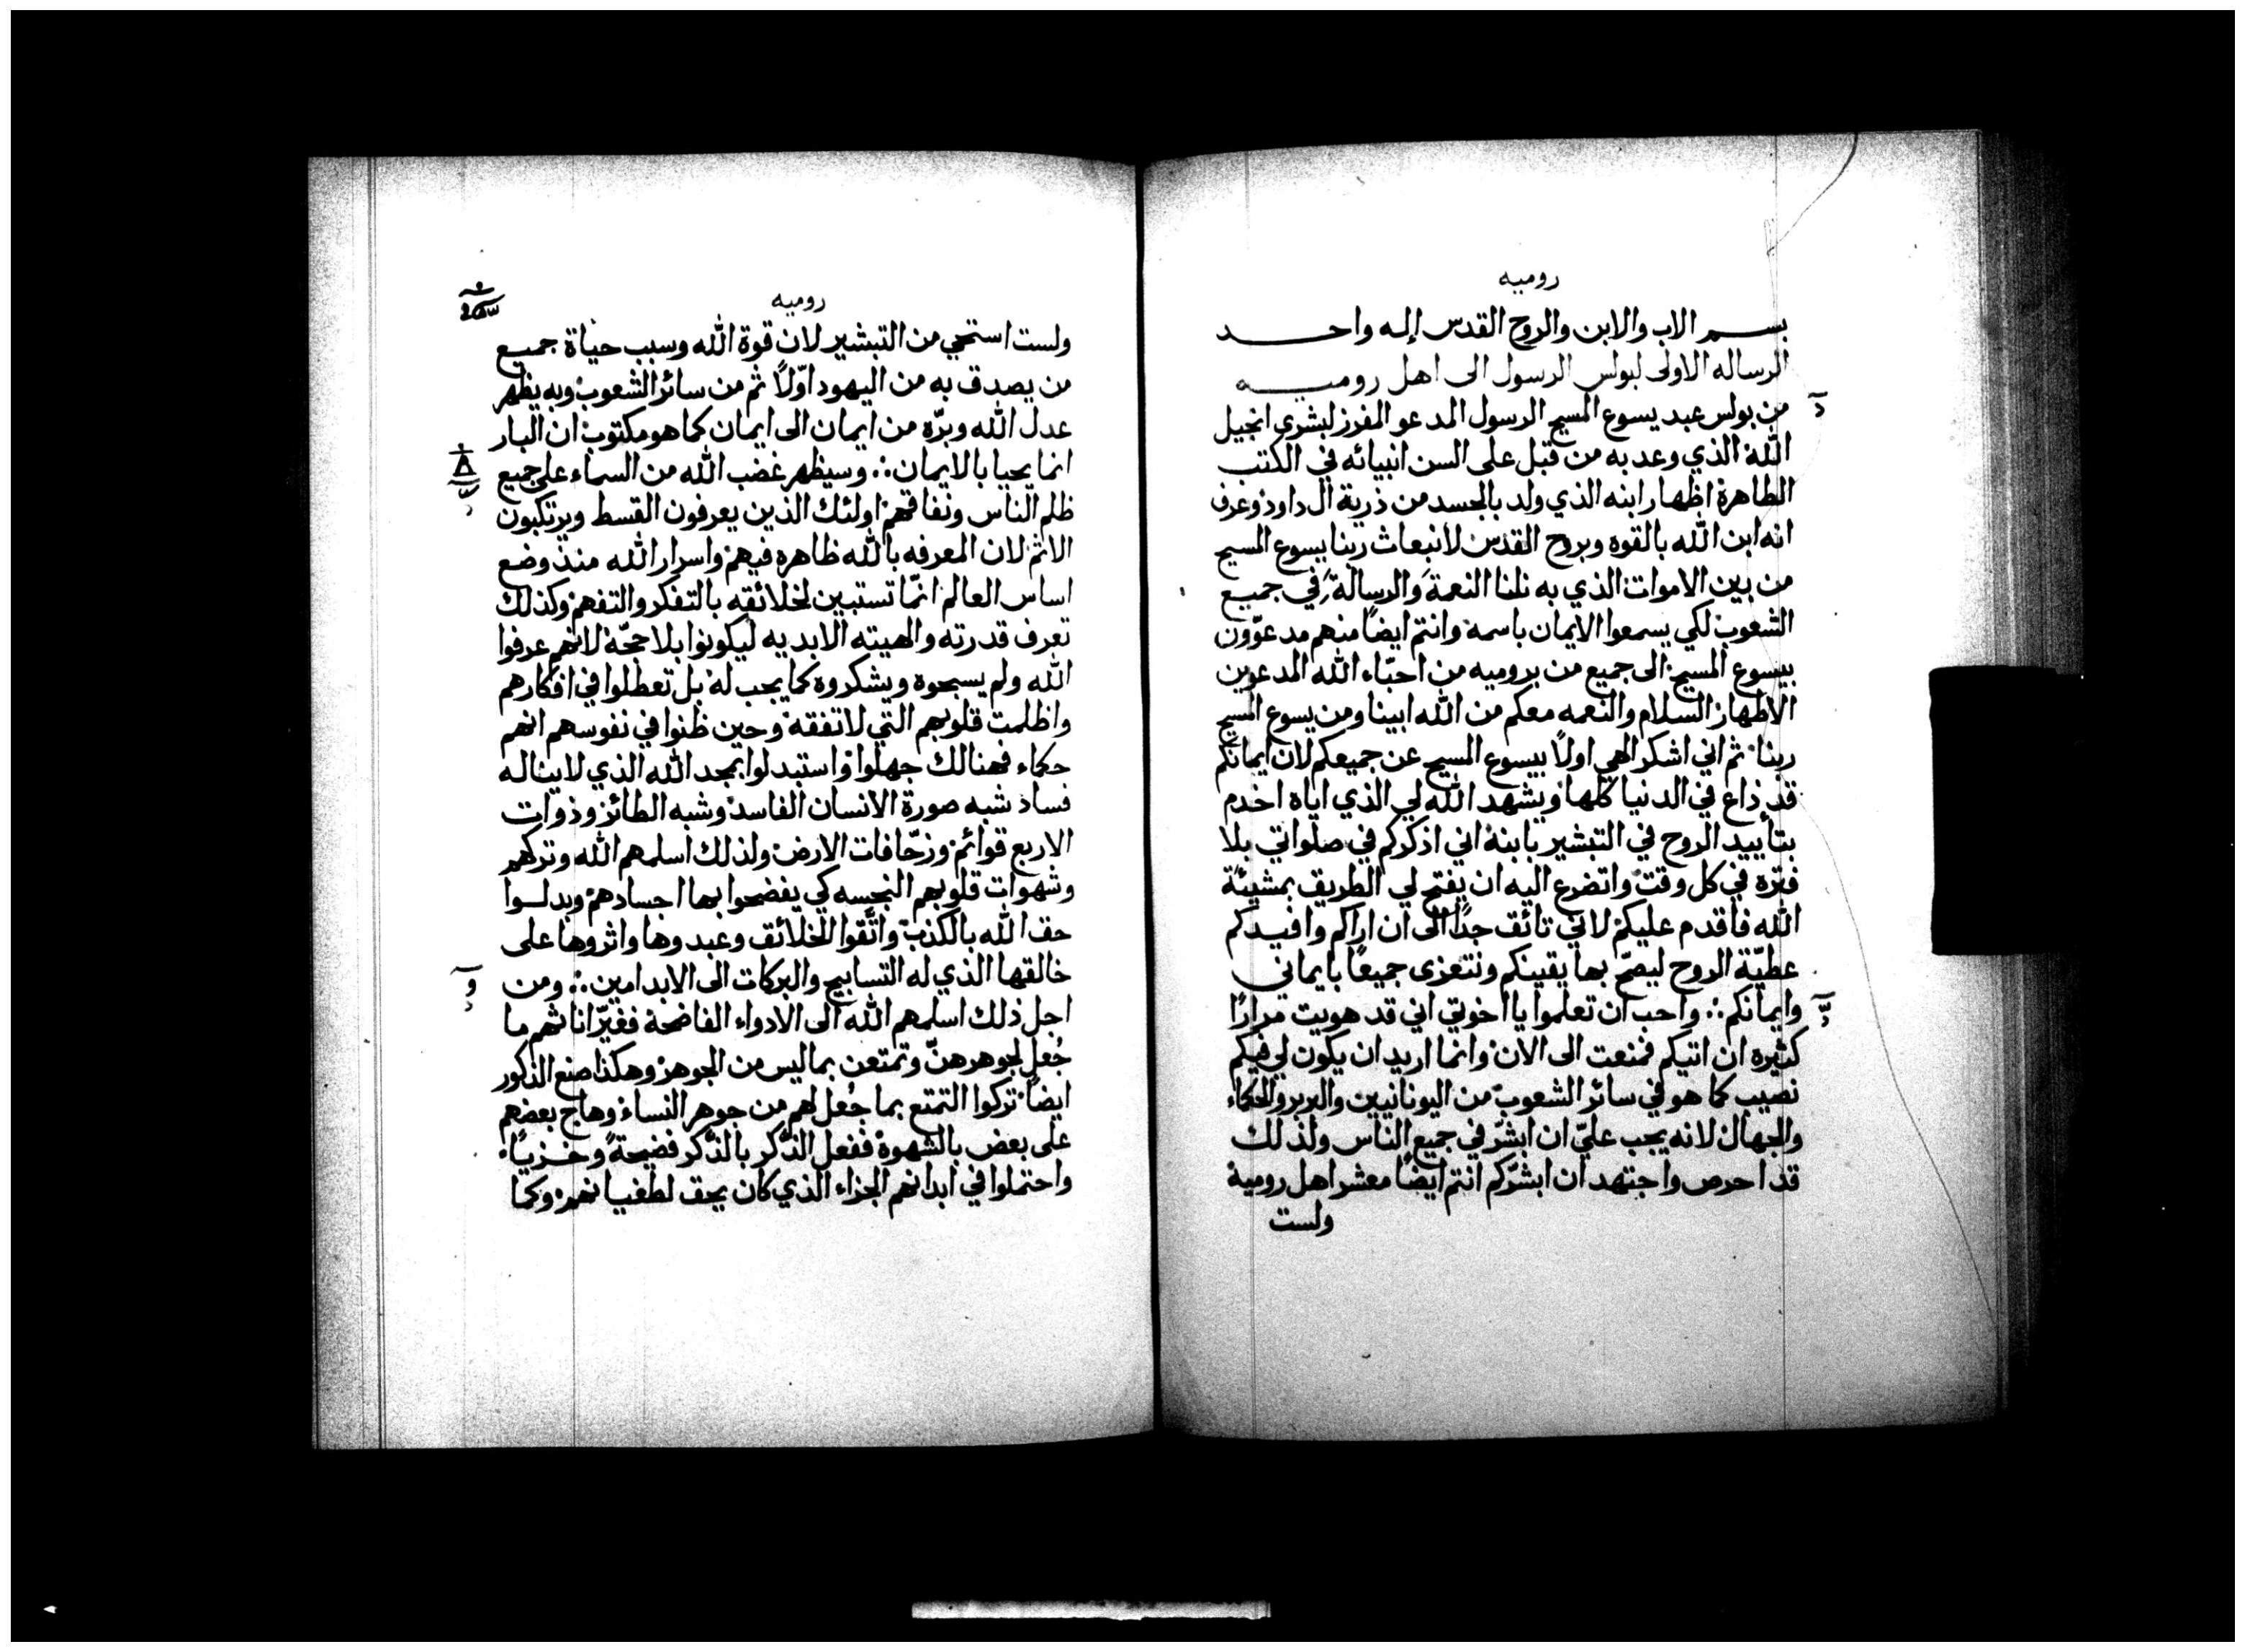 روميه
بسم الاب والابن والروح القدس إله واحد
الرساله الاولى لبولس الرسول الى اهل روميه
من بولس عبد يسوع المسيح الرسول المدعو المفرز لبشرى انجيل
الله الذي وعد به من قبل على السن انبيائه في الكتب
الطاهرة اظهار ابنه الذي ولد بالجسد من ذرية ال داود وعرف
انه ابن الله بالقوه وبروح القدس لانبعاث ربنا يسوع المسيح
من بين الاموات الذي به نلنا النعمة والرسالة في جميع
الشعوب لكي يسمعوا الايمان باسمه وانتم ايضًا منهم مدعوّون
بيسوع المسيح الى جميع من بروميه من احبّاء الله المدعوين
الاطهار السلام والنعمه معكم من الله ابينا ومن يسوع المسيح
ربنا ثم اني اشكر الهي اولاً بيسوع المسيح عن جميعكم لان ايمانكم
قد ذاع في الدنيا كلها ويشهد الله لي الذي اياه اخدم
بتاييد الروح في التبشير بابنه اني اذكركم في صلواتي بلا
فتره في كل وقت واتضرع اليه ان يفتح لي الطريق بمشيئة
الله فاقدم عليكم لاني تائق جدًا الى ان اراكم وافيدكم
عطيّة الروح ليصحّ بها يقينكم ونتعزى جميعًا بايماني
وايمانكم :. واحب ان تعلموا يا اخوتي اني قد هويت مرارًا
كثيره ان اتيكم فمنعت الى الان وانما اريد ان يكون لي فيكم
نصيب كما هو في سائر الشعوب من اليونانيين والبربر والحكماء
والجهال لانه يجب عليّ ان ابشّر في جميع الناس ولذلك
قد احرص واجتهد ان ابشّركم انتم ايضًا معشر اهل رومية
ولست
روميه
ولست استحي من التبشير لان قوة الله وسبب حياة جميع
من يصدق به من اليهود اوّلاً ثم من سائر الشعوب وبه يظهر
عدل الله وبرّه من ايمان الى ايمان كما هو مكتوب ان البار
انما يحيا بالايمان :. وسيظهر غضب الله من السماء على جميع
ظلم الناس ونفاقهم اولئك الذين يعرفون القسط ويرتكبون
الاثم لان المعرفه بالله ظاهره فيهم واسرار الله منذ وضع
اساس العالم انّما تستبين لخلائقه بالتفكر والتفهم وكذلك
تعرف قدرته والهيته الابديه ليكونوا بلا حجّة لانهم عرفوا
الله ولم يسبحوه ويشكروه كما يجب له بل تعطلوا في افكارهم
واظلمت قلوبهم التي لا تفقه وحين ظنوا في نفوسهم انهم
حكماء فهنالك جهلوا واستبدلوا بمجد الله الذي لا يناله
فساد شبه صورة الانسان الفاسد وشبه الطائر وذوات
الاربع قوائم وزحّافات الارض ولذلك اسلمهم الله وتركهم
وشهوات قلوبهم النجسه كي يفضحوا بها اجسادهم وبدلوا
حق الله بالكذب واتّقوا الخلائق وعبدوها واثروها على
خالقها الذي له التسابيح والبركات الى الابد امين :. ومن
اجل ذلك اسلمهم الله الى الادواء الفاضحة فغيّر اناثهم ما
جُعل لجوهرهنّ وتمتعن بما ليس من الجوهر وهكذا صنع الذكور
ايضًا تركوا التمتع بما جُعل لهم من جوهر النساء وهاج بعضهم
على بعض بالشهوة ففعل الذّكر بالذّكر فضيحةً وخزيًاء
واحتملوا في ابدانهم الجزاء الذي كان يحق لطغيانهم وكما